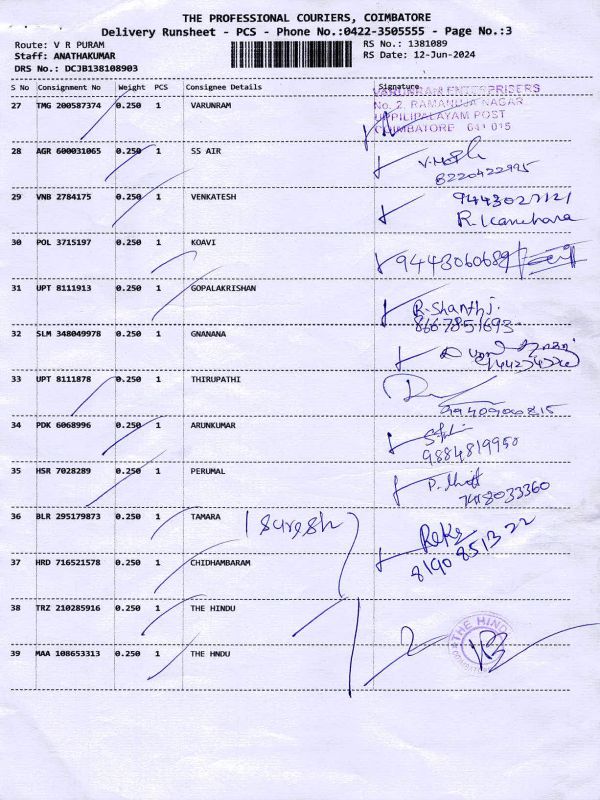 THE PROFESSIONAL COURIERS, COIMBATORE
Delivery Runsheet - PCS - Phone No.:0422-3505555 - Page No.:3
Route: V R PURAM
RS No.: 1381089
Staff: ANATHAKUMAR
RS Date: 12-Jun-2024
DRS No.: DCJB138108903
S No Consignment No Weight PCS Consignee Details Signature
VARUNRAM ENTERPRISERS
27 TMG 200587374 0.250 1 VARUNRAM
No. 2, RAMANUJA NAGAR
UPPILIPALAYAM POST
COIMBATORE 641 015
28 AGR 600031065 0.250 1 SS AIR
8220422995
29 VNB 2784175 0.250 1 VENKATESH
9443027121
30 POL 3715197 0.250 1 KOAVI
9443060689
31 UPT 8111913 0.250 1 GOPALAKRISHAN
R. Shanthi
8667851693
32 SLM 348049978 0.250 1 GNANANA
33 UPT 8111878 0.250 1 THIRUPATHI
9940906815
34 PDK 6068996 0.250 1 ARUNKUMAR
9884819950
35 HSR 7028289 0.250 1 PERUMAL
7418033360
36 BLR 295179873 0.250 1 TAMARA Suresh
Reka
8190851322
37 HRD 716521578 0.250 1 CHIDHAMBARAM
38 TRZ 210285916 0.250 1 THE HINDU
THE HIND
39 MAA 108653313 0.250 1 THE HNDU